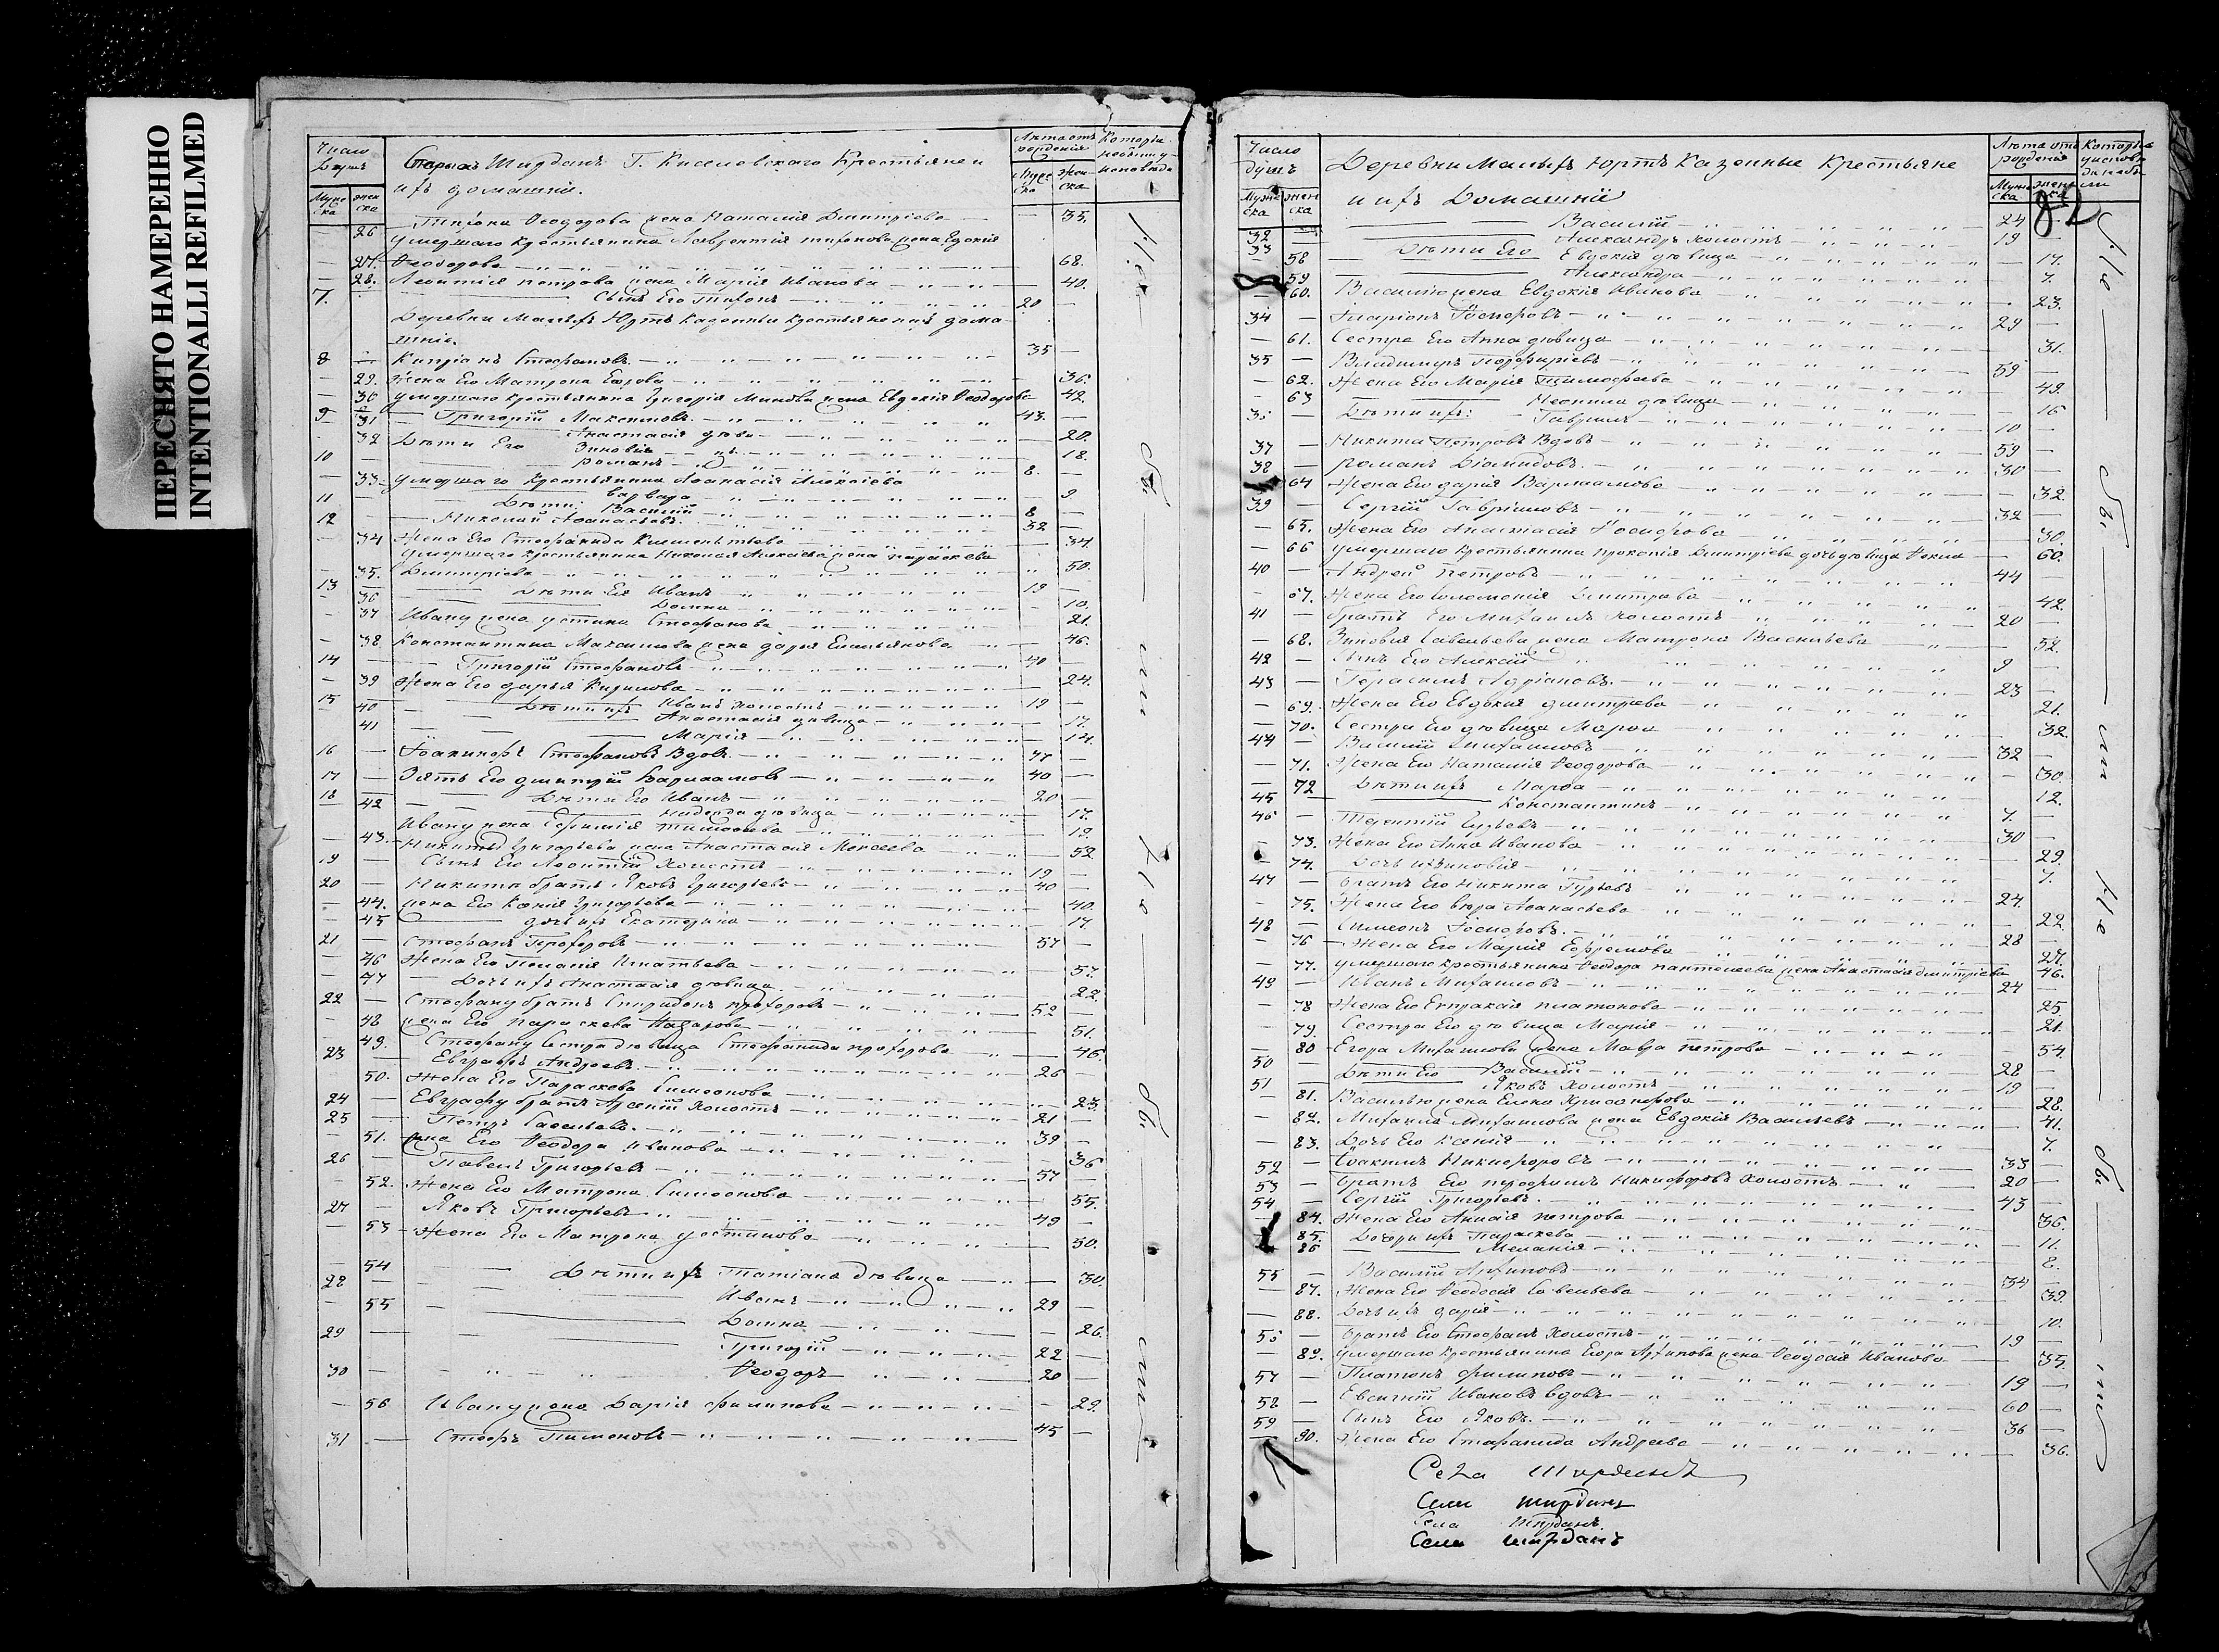 ПЕРЕСНЯТО НАМЕРЕННО
INTENTIONALLI REFILMED
Число душъ
Мужеска
женска
Ширданъ Г. Киселовскаго Крестьяне и
ихъ домашнiи.
Лѣта отъ рожденiя
Мужеска
Женска
26 Тихона Ѳеодорова жена Наталiя Дмитрiева 35.
умершаго крестьянина Лаврентiя тихонова жена Евдокiя
27. Ѳеодорова 68.
28. Леонтiя петрова жена Марiя Иванова 40.
7. Сынъ Его тихонъ 20
Деревни Малыхъ Юртъ Казенныи крестьяне и ихъ дома-
шнiи.
8 Кипрiанъ Стефановъ 35
29. Жена Его Матрона Егорова 36.
30 умершаго крестьянина Григорiя Минѣева жена Евдокiя Ѳеодорова 42.
9 Григорiй Максимовъ 43.
31 Дѣти Его Анастасiя дѣвица 20.
32 Зиновiя 18.
10 романъ 8.
33 умершаго Крестьянина Аѳанасiя Алексѣева
Дѣти Варвара 9
11 Василiй 8
12 Николай Аѳанасьевъ 32
34 Жена Его Стефанида Климентьева 34.
умершаго крестьянина Николая Алексѣева жена параскева
35. Дмитрiева 50.
13 Дѣти Ея Иванъ 19
36 Домна 10.
37 Ивану жена устина Стефанова 21.
38 Константина Михаилова жена дарья Емельянова 46.
14 Григорiй Стефановъ 40
39 Жена Его дарья Кирилова 24.
15 Дѣти ихъ Иванъ холостъ 19
40 Анастасiя дѣвица 17.
41 Марiя 14.
16 Iоакимъ Стефановъ Вдовъ 47
17 Зять Его дмитрiй Варламовъ 40
18 Дѣти Его Иванъ 20
42 Надежда дѣвица 17.
Ивану жена Ефимiя тимоѳеева 19.
43. Никиты Григорьева жена Анастасiя Моисеева 52
19 Сынъ Его Леонтiй Холостъ 19
20 Никиты братъ Яковъ Григорьевъ 40
44. жена Его Ксенiя Григорьева 40.
45 дочь ихъ Екатерина 17.
21 Стефанъ Прохоровъ 57
46 Жена Его Пелагiя Игнатьева 57.
47 Дочь ихъ Анастасiя дѣвица 22.
22 Стефану братъ Спиридонъ прохоровъ 52
48 жена Его параскева Назарова 51.
49. Стефану Сестра дѣвица Стефанида прохорова 46
23 Евграфъ Андреевъ 26
50. Жена Его Параскева Симеонова 23.
24 Евграфу братъ Арсенiй Холостъ 21
25 Петръ Савельевъ 39
51. жена Его Ѳеодора Иванова 36
26 Павелъ Григорьевъ 57
52. Жена Его Матрона Симеонова 55.
27 Яковъ Григорьевъ 49
53 Жена Его Матрона устинова 50.
54 Дѣти ихъ Татiана дѣвица 30.
28 Иванъ 29
55 Домна 26.
29 Григорiй 22
30 Ѳеодоръ 20
56 Ивану жена Дарiя филипова 29.
31 Стефъ Пименовъ 45
Не были Не были
Число душъ
Мужеска
женска
Деревни Малыхъ Юртъ Казенные Крестьяне
и ихъ Домашнiи
Лѣта отъ рожденiя
Мужеска
женска
82
32 Василiй 24
33 Дѣти Его Александръ холостъ 19
58 Евдокiя дѣвица 17.
59 Александра 7.
60. Василiю жена Евдокiя Иванова 23.
34 Иларiонъ Ѳедоровъ 29
61. Сестра Его Анна дѣвица 31.
35 Владимиръ Порфирiевъ 59
62. Жена Его Марiя Тимоѳеева 49.
63 Неонила дѣвица 16
Дѣти ихъ: Гаврiилъ 10
37 Никита Петровъ Вдовъ 59
38 романъ Дiомидовъ 30
64 Жена Его дарiя Варламова 32.
39 Сергiй Гаврiиловъ 32
65. Жена Его Анастасiя Ѳеодорова 30.
66 умершаго крестьянина прокопiя Дмитрiева дочь дѣвица Ѳекла 60.
40 Андрей Петровъ 44
67. Жена Его Соломонiя Дмитрiева 42.
41 братъ Его Михаилъ Холостъ 20
68. Зиновiя Савельева жена Матрона Васильева 52.
42 Сынъ Его Алексiй 9
43 Герасимъ Адрiановъ 23
69. Жена Его Евдокiя дмитрiева 21.
70. Сестра Его дѣвица Марѳа 32.
44 Василiй Михаиловъ 32
71. Жена Его Наталiя Ѳеодорова 30.
72 Дѣти ихъ Марѳа 12.
45 Константинъ 7.
46 Терентiй Гурьевъ 30
73. Жена Его Анна Иванова 29.
74. Дочь ихъ Зиновiя 7.
47 братъ Его Никита Гурьевъ 24.
75. Жена Его вѣра Аѳанасьева 22.
48 Симеонъ Ѳедоровъ 28
76 Жена Его Марiя Ефремова 27.
77. умершаго крестьянина Ѳеодора пантелеева жена Анастасiя дмитрiева 46.
49 Иванъ Михаиловъ 24
78 Жена Его Евпраксiя платонова 25
79. Сестра Его дѣвица Марiя 21.
80 Егора Михаилова жена Мавра петрова 54.
50 Дѣти Его Василiй 28
51 Яковъ Холостъ 19
81. Василью жена Елена Хрисанфова 28.
82. Михаила Михаилова жена Евдокiя Васильевъ 41.
83. Дочь Его Ксенiя 7.
52 Iоакимъ Никифоровъ 33
53 братъ Его порфирiй Никифоровъ Холостъ 20
54 Сергiй Григорьевъ 43
84. Жена Его Анисiя петрова 36.
85. Дочери ихъ Параскева 11.
86 Меланiя 2.
55 Василiй Архиповъ 34
87. Жена Его Ѳеодосiя Савельева 39.
88. Дочь ихъ дарiя 10.
братъ Его Стефанъ Холостъ 19
89. умершаго крестьянина Егора Архипова жена Ѳеодосiя Иванова 35.
57 Платонъ филиповъ 19
58 Евсигнiй Ивановъ вдовъ 60
59 Сынъ Его Яковъ 36
90. Жена Его Стефанида Андреева 36.
Не были Не были
Села Ширданъ
Села ширданъ
Села Ширданъ
Села ширданъ